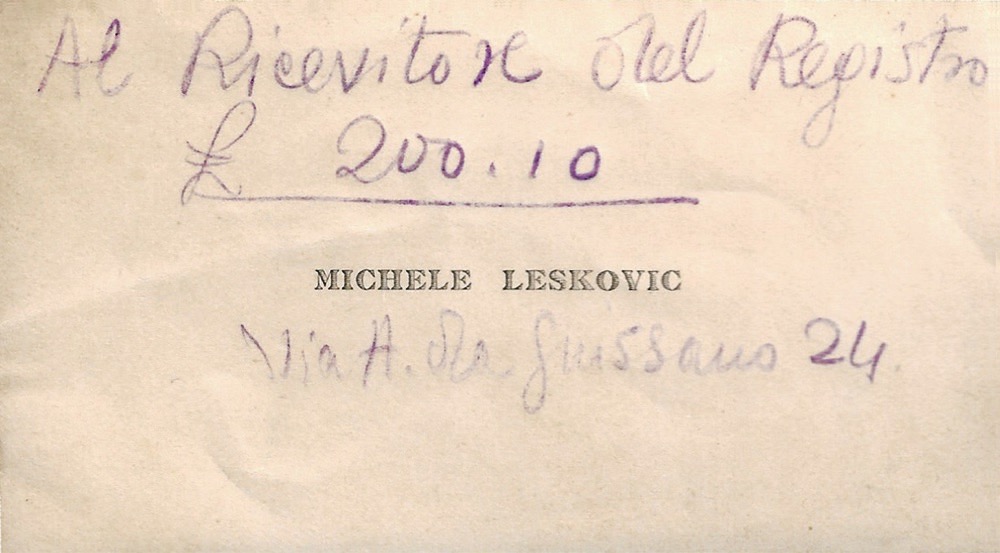 Al Ricevitore del Registro
£ 200.10
MICHELE LESKOVIC
Via A. da Giussano 24.